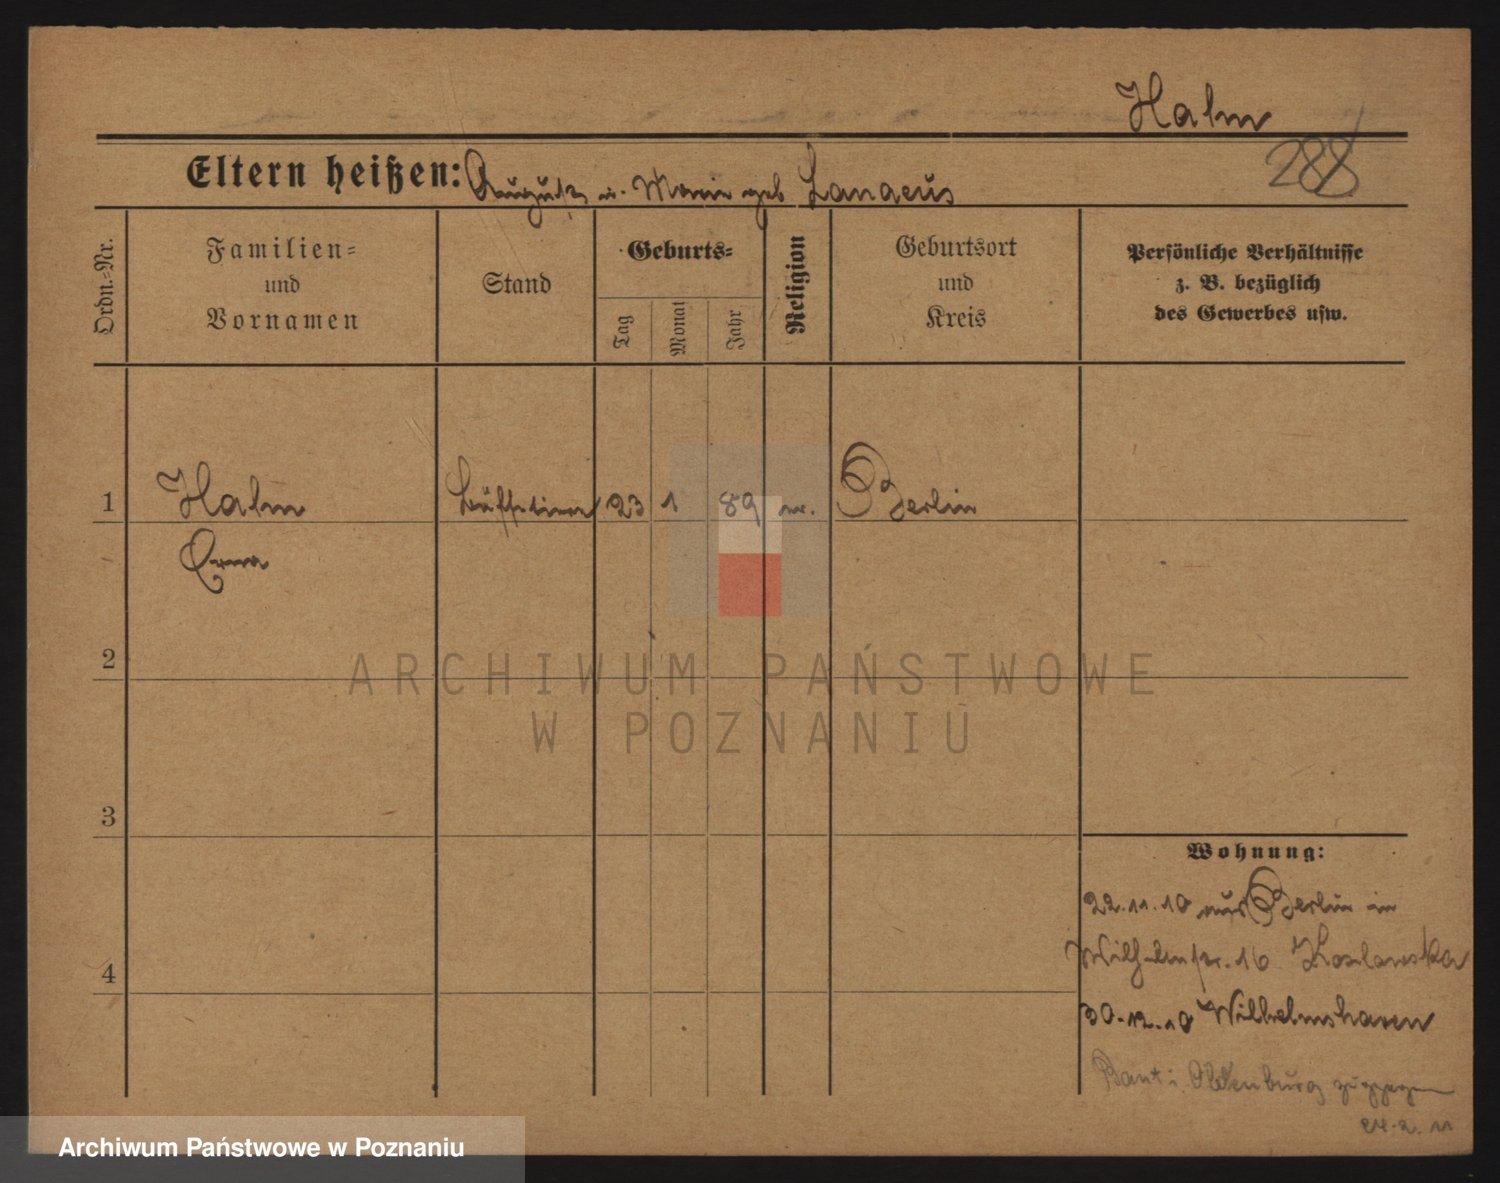 Halm
288
Eltern heißen: August u. Marie geb
Ordn.-Nr.
Familien- und Vornamen
Stand
Geburts-
Tag
Monat
Jahr
Religion
Geburtsort und Kreis
Persönliche Verhältnisse
z. B. bezüglich
des Gewerbes usw.
1 Halm 23 1 89 Berlin
2
3
4
Wohnung:
22.11.10 aus Berlin in
Wilhelmstr. 16
30.12.10 Wilhelmshaven
Bant i. Oldenburg zugezogen
24.2.11
ARCHIWUM PAŃSTWOWE
W POZNANIU
Archiwum Państwowe w Poznaniu